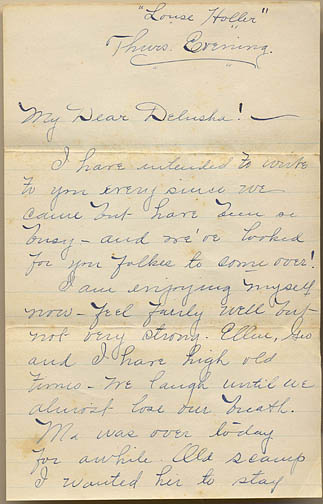 "Louse Holler"
Thurs. Evening.
My Dear Delusha! —
I have intended to write
to you every since we
came but have been so
busy – and we've looked
for you folkes to come over!
I am enjoying myself
now – feel fairly well but
not very strong. Ellen, Geo
and I have high old
times – We laugh until we
almost lose our breath.
Ma was over to day
for awhile. Old scamp
I wanted her to stay